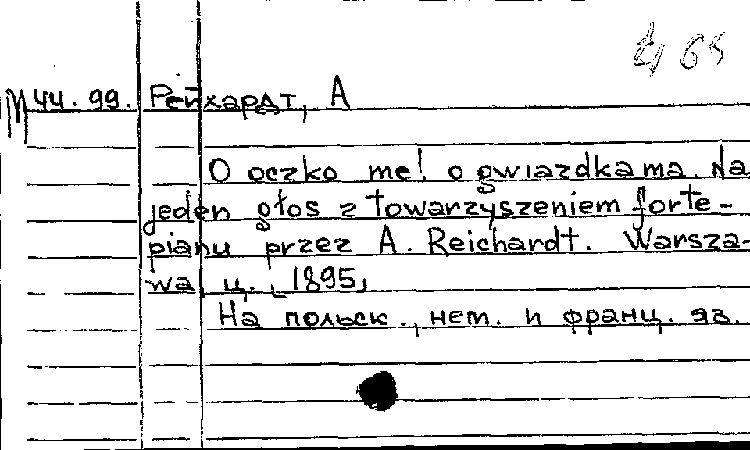 65
М 44.99. Рейхардт, А
O oczko me! o gwiazdka ma. Na
jeden głos z towarzyszeniem forte-
pianu przez A. Reichardt. Warsza-
wa, ц. 1895,
На польск., нем. и франц. яз.